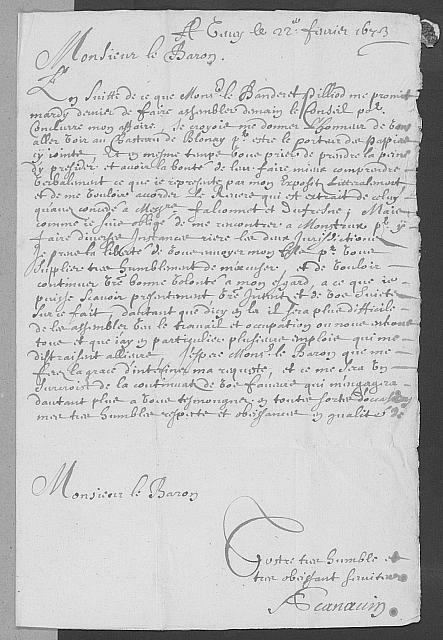 A Cully le 22e fevrier 1673
Monsieur le Baron.
En suitte de ce que Monsr le Banderet Pilliod me promit
mardy dernier de faire assembler demain le Conseil pr
conclurre mon affaire. Je croyois me donner l'honneur de vous
aller voir au Chasteau de Blonay pr estre le porteur des papiers
cy jointe, Et en mesme temps vous prier de prendre la peine
dy presider, et avoir la bonté de leur faire mieux comprendre
verbalement ce que je represente par mon Exposé
et de me vouloir accorder le qui est extrait de celuy
quavez concedé a Messrs et Dufresne; Mais
comme je suis obligé de me rencontrer a Monstreux pr y
faire diverses Instances riere les deux Jurisdictions
Je prens la liberté de vous envoyer mon pr vous
supplier tres humblement de m'excuser, et de vouloir
continuer vre bonne volonté a mon esgard, a ce que je
puisse scavoir presentement vre Intention et de vre suitte
sur ce fait, dautant que dicy en la il sera plus difficile
de les assembler veu le travail et occupation ou nous entrons
tous et que jay en particulier plusieurs emplois qui me
distraisent allieurs, J'espere Monsr le Baron que me
fere la grace d'interiner ma requeste, et ce me sera un
surcroist de la continuaon de vre faveur qui m'engagera
dautant plus a vous tesmoigner en toutte sorte d'occasions
mes tres humbles respects et obeissances en qualité de
Monsieur le Baron
Vostre tres humble et
tres obeissant serviteur